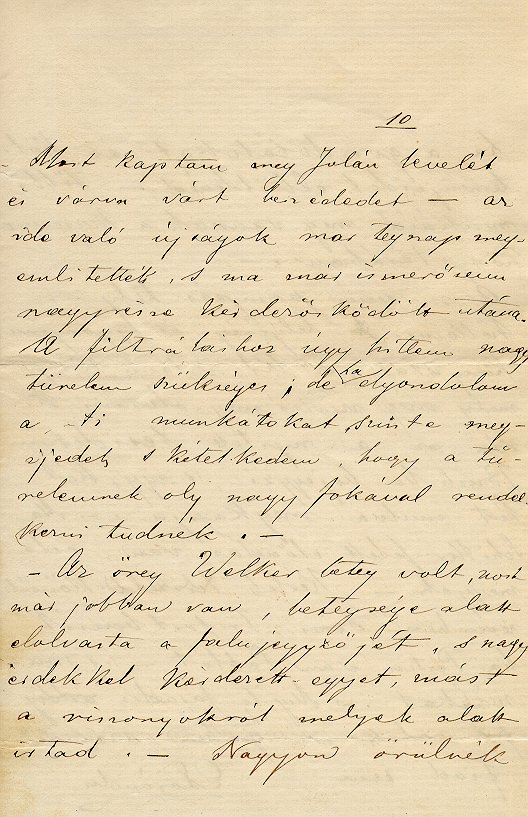 10
- Most kaptam meg Jolán levelét
és várva várt beszédedet — az
ide való újságok már tegnap meg
emlitették, s ma már ismerőseim
nagyrésze kérdezősködött utána.
A filtráláshoz úgy hittem nagy
türelem szükséges, de ha elgondolom
a ti munkátokat szinte meg-
ijedek s kételkedem, hogy a tü-
relemnek oly nagy fokával rendel
kezni tudnék. —
- Az öreg Welker beteg volt, most
már jobban van, betegsége alatt
elolvasta a falu jegyzőjét, s nagy
érdekkel kérdezett egyet, mást
a viszonyokról melyek alatt
irtad. — Nagyon örülnék